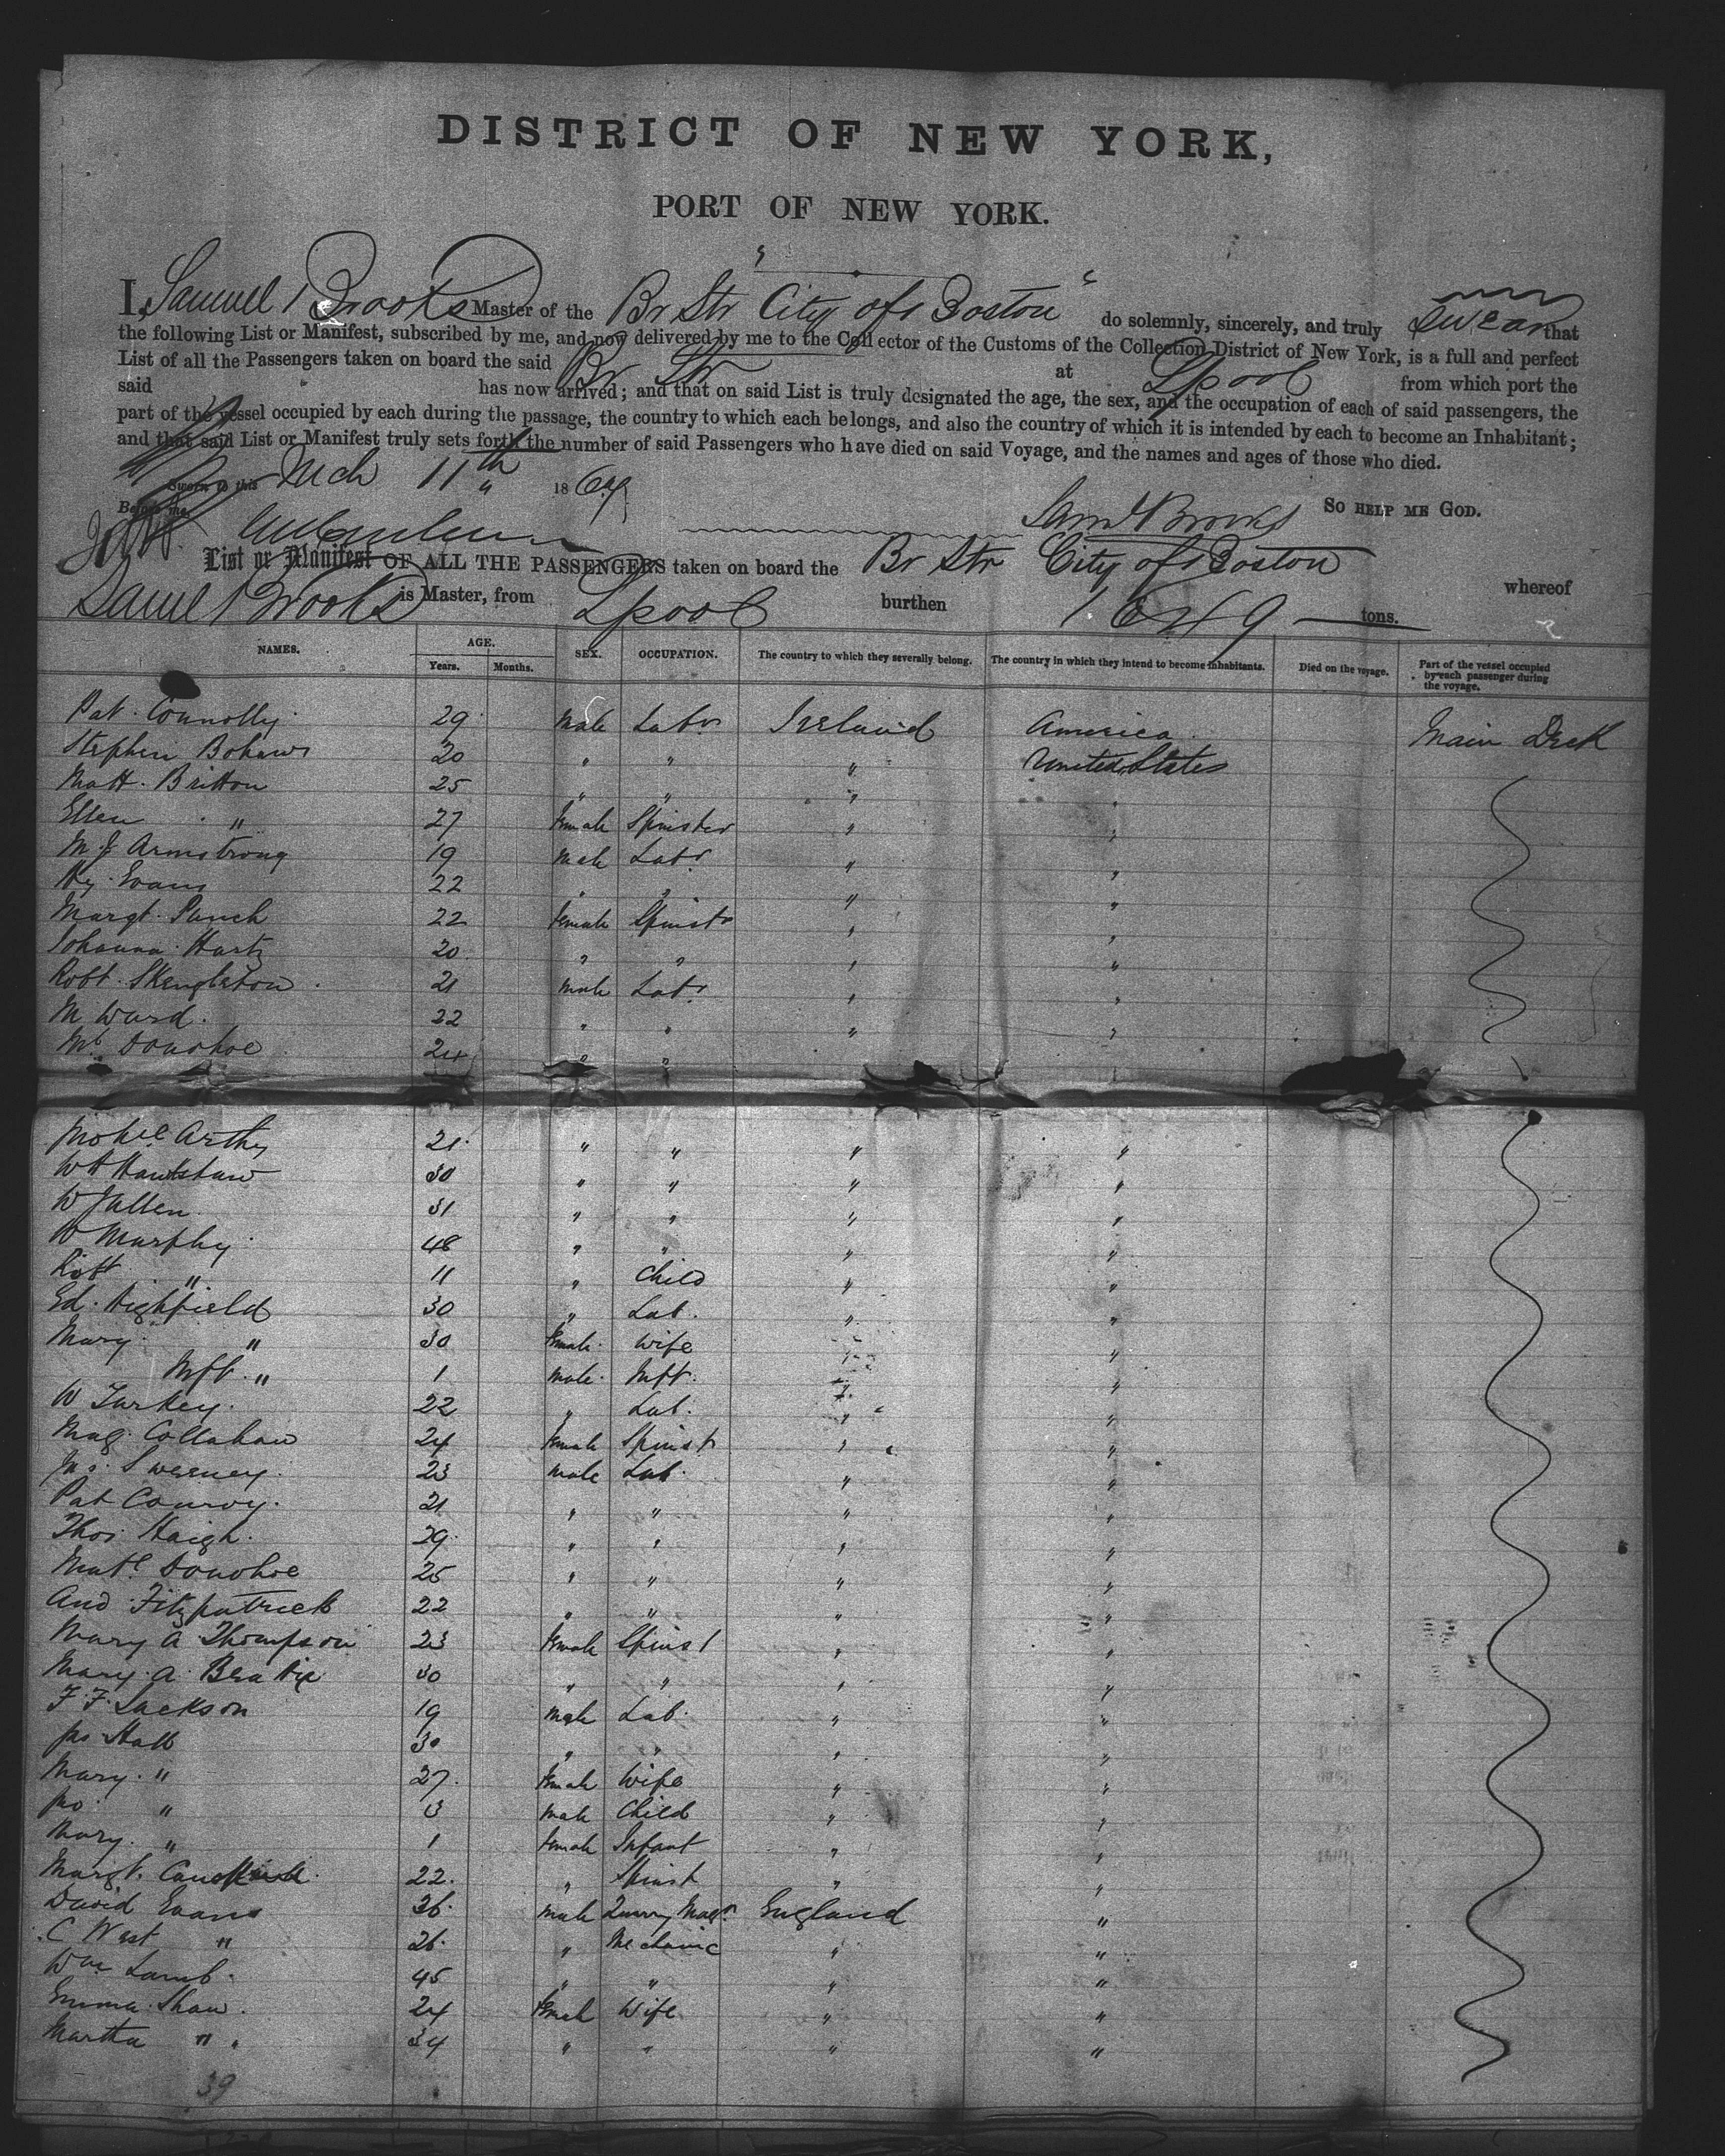 DISTRICT OF NEW YORK,
PORT OF NEW YORK.
I, Samuel Brooks Master of the Br Str "City of Boston" do solemnly, sincerely, and truly swear that
the following List or Manifest, subscribed by me, and now delivered by me to the Collector of the Customs of the Collection District of New York, is a full and perfect
List of all the Passengers taken on board the said Br Str at Lpool from which port the
said has now arrived; and that on said List is truly designated the age, the sex, and the occupation of each of said passengers, the
part of the vessel occupied by each during the passage, the country to which each belongs, and also the country of which it is intended by each to become an Inhabitant;
and that said List or Manifest truly sets forth the number of said Passengers who have died on said Voyage, and the names and ages of those who died.
Sworn to this Mch 11th 1869
So HELP ME GOD.
Before me, Saml Brooks
List or Manifest OF ALL THE PASSENGERS taken on board the Br Str City of Boston whereof
Samuel Brooks is Master, from Lpool burthen 1649 tons.
NAMES. AGE. Years. Months. SEX. OCCUPATION. The country to which they severally belong. The country in which they intend to become inhabitants. Died on the voyage. Part of the vessel occupied by each passenger during the voyage.
Pat Connolly 29 Male Labr Ireland America Main Deck
Stephen 20 " " " United States
Matt Britton 25 " " " "
Ellen " 27 Female Spinster " "
M. J Armstrong 19 Male Labr " "
Hy Evans 22 " " " "
Margt Punch 22 Female Spinstr " "
Johanna 20 " " " "
Robt Skengleton 21 Male Labr " "
M Ward 22 " " " "
Donohoe 24 " "
21 " " " "
30 " " " "
31 " " " "
W Murphy 48 " " " "
Robt " 11 " Child " "
Ed. Highfield 30 " Lab. " "
Mary " 30 Female Wife " "
Inft " 1 male Inft. " "
W 22 " Lab. " "
Mag. Collahan 24 Female Spinst " "
Jas. Sweeney 23 male Lab. " "
Pat Conroy 21 " " " "
Thos Haigh 29 " " " "
Donohoe 25 " " " "
And Fitzpatrick 22 " " " "
Mary A Thompson 23 Female Spinst " "
Mary A. Beattie 30 " " " "
F. F. Jackson 19 male Lab. " "
Hall 30 " " " "
Mary " 27 Female Wife " "
Jno " 3 male Child " "
Mary " 1 Female Infant " "
Margt. 22 " Spinst " "
David Evans 36 male Quarry England "
C West " 26 " Mechanic " "
Wm Lamb 45 " " " "
Emma Shaw 24 Female Wife " "
Martha " 34 " " " "
39